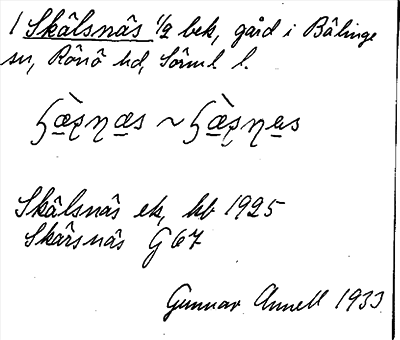 1 Skälsnäs 1/2 bek, gård i Bälinge
sn, Rönö hd, Söml l.
Skälsnäs ek, kb 1925
Skärsnäs G 67
Gunnar Annell 1933